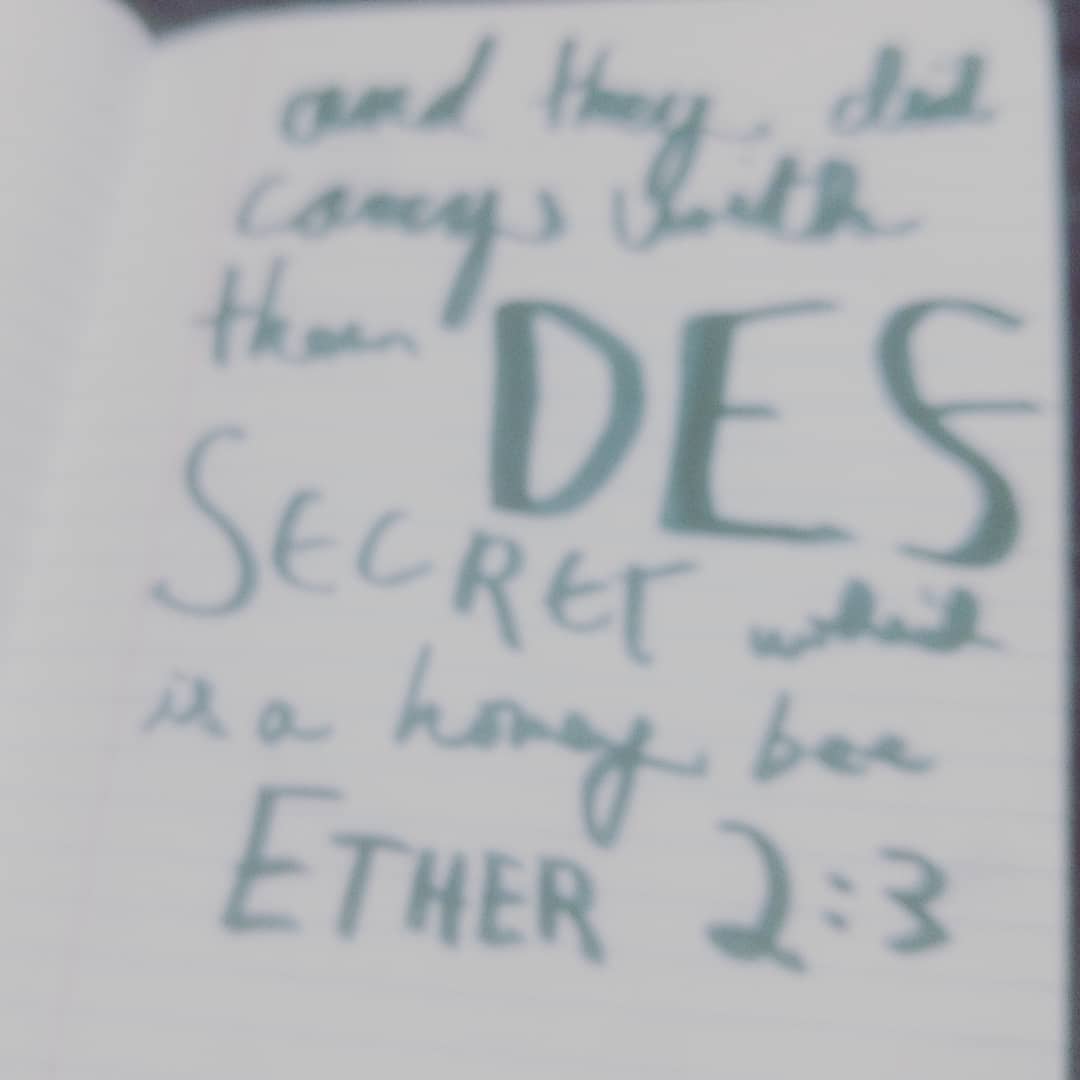 and they did
carry with
them DES
SECRET which
is a honey bee
ETHER 2:3